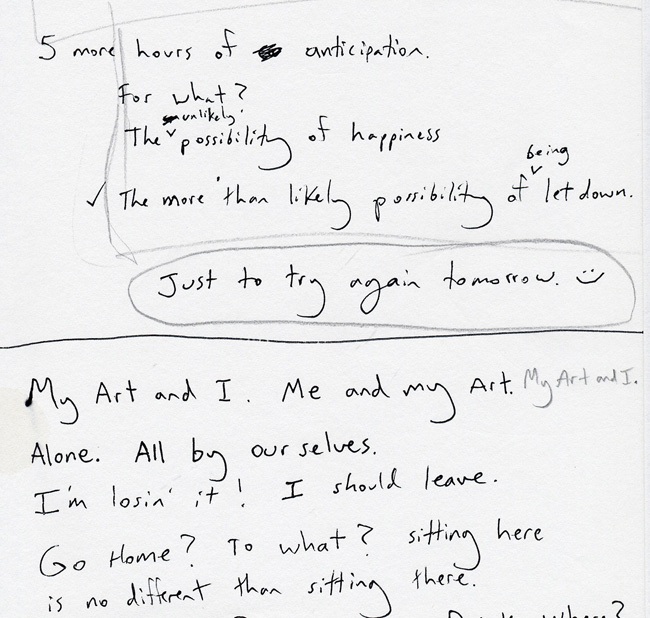 5 more hours of anticipation.
For what?
unlikely
The possibility of happiness
being
✓ The more than likely possibility of let down.
Just to try again tomorrow. :)
My Art and I. Me and my Art. My Art and I.
Alone. All by ourselves.
I'm losin' it! I should leave.
Go Home? To what? sitting here
is no different than sitting there.
where?